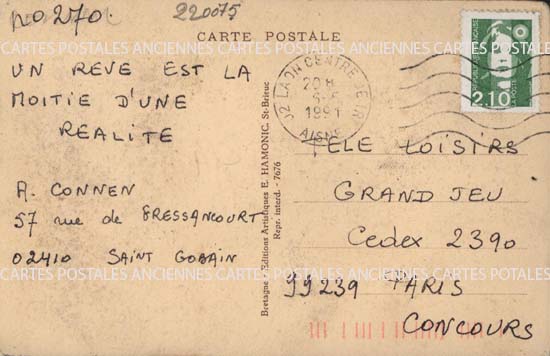 no 270.
220075
CARTE POSTALE
UN REVE EST LA
MOITIE D'UNE
REALITE
A. CONNEN
57 rue de BRESSANCOURT
02410 SAINT GOBAIN
Bretagne - Editions Artistiques E. HAMONIC, St-Brieuc
Repr. interd. - 7676
02 LAON CENTRE
20 H
1991
AISNE
2,10
LA POSTE
TELE LOISIRS
GRAND JEU
Cedex 2390
99239 PARIS
CONCOURS
CARTES POSTALES ANCIENNES CARTES POSTALES ANCIENNES CARTES POSTALES
CARTES POSTALES ANCIENNES CARTES POSTALES ANCIENNES CARTES POSTALES
CARTES POSTALES ANCIENNES CARTES POSTALES ANCIENNES CARTES POSTALES